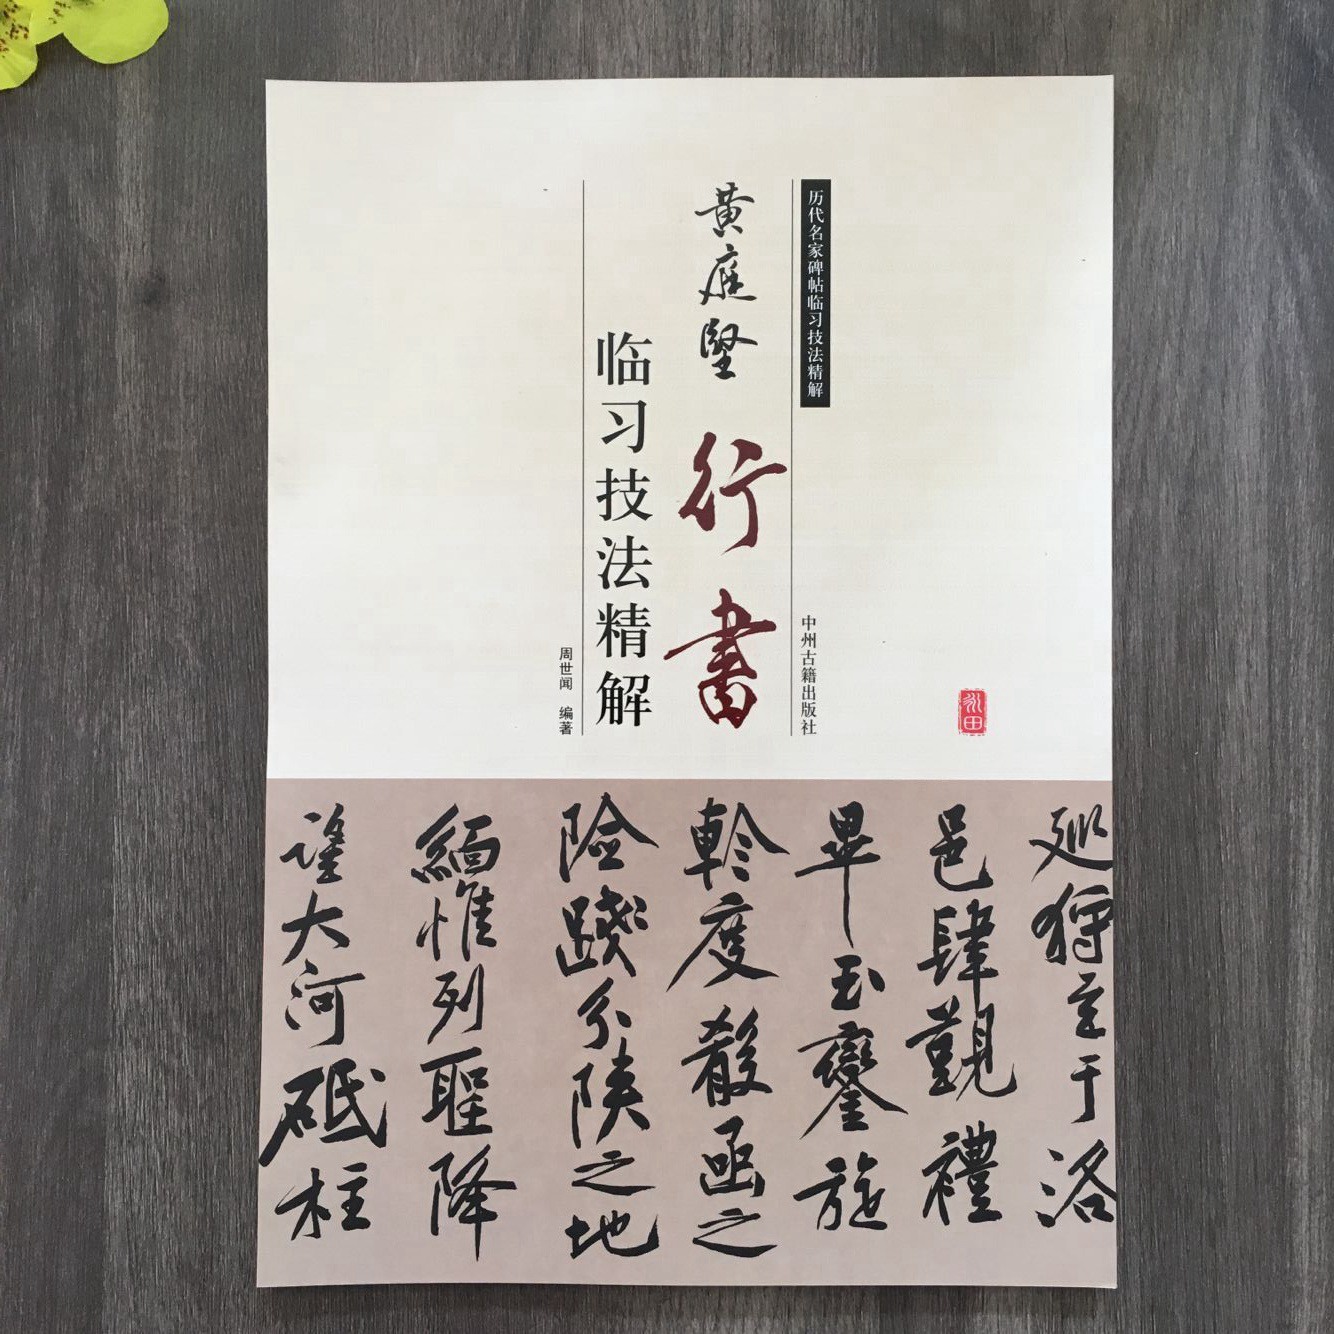 历代名家碑帖临习技法精解
中州古籍出版社
黄庭堅
行書
临习技法精解
周世闻 编著
永田
巡狩至于洛
邑肆覲禮
畢玉鑾旋
軫度殽函之
險踐分陝之地
緬惟列聖降
望大河砥柱